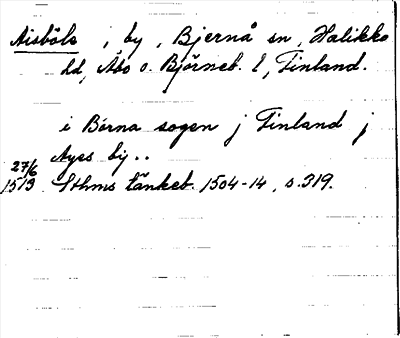 Aisböle, by, Bjernå sn, Halikko
hd, Åbo o. Björneb. l, Finland.
i Bérna sogen j Finland j
Ayss by..
27/6
1513 Sthms tänkeb. 1504-14, s. 319.